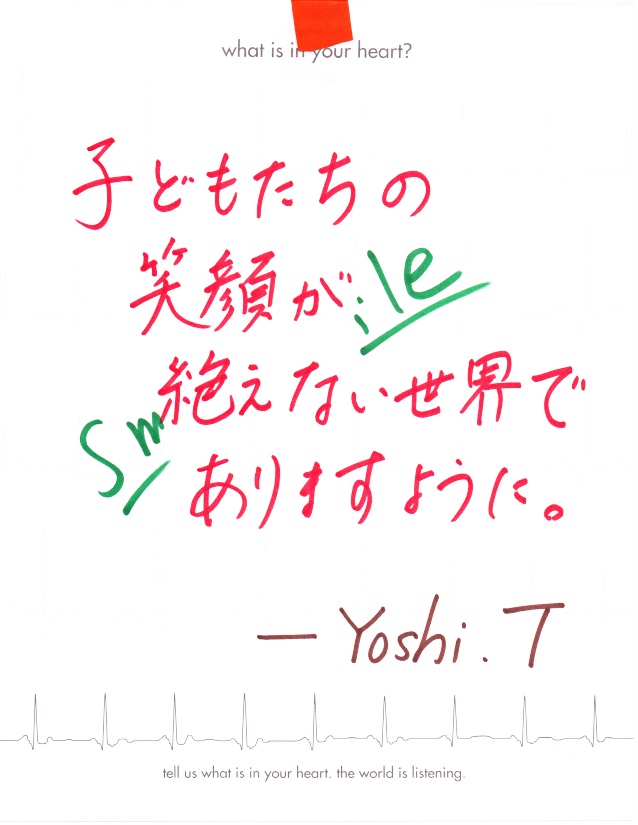 what is in your heart?
子どもたちの
笑顔が
絶えない世界で
ありますように。
Smile
— Yoshi. T
tell us what is in your heart. the world is listening.